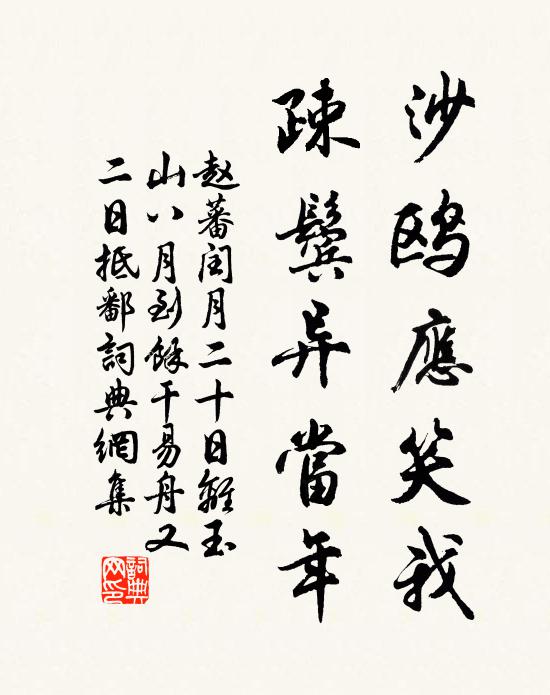 沙鸥應笑我
疎鬓异當年
赵蕃闰月二十日離玉
山八月到餘干易舟又
二日抵鄱詞典網集
詞典网印